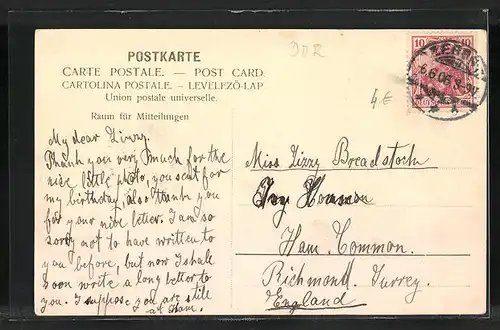 POSTKARTE
CARTE POSTALE. — POST CARD.
CARTOLINA POSTALE. — LEVELEZŐ-LAP
Union postale universelle.
Raum für Mitteilungen
My dear Lizzy.
Thank you very much for the
nice little photo, you sent for
my birthday, also thank you
for your nice letter. I am so
sorry not to have written to
you before, but now I shall
soon write a long letter to
you. I suppose you are still
at Ham.
DDR
4 €
10 10
6.6.06
Miss Lizzy Breadstock
Ham. Common.
Richmond. Surrey.
England